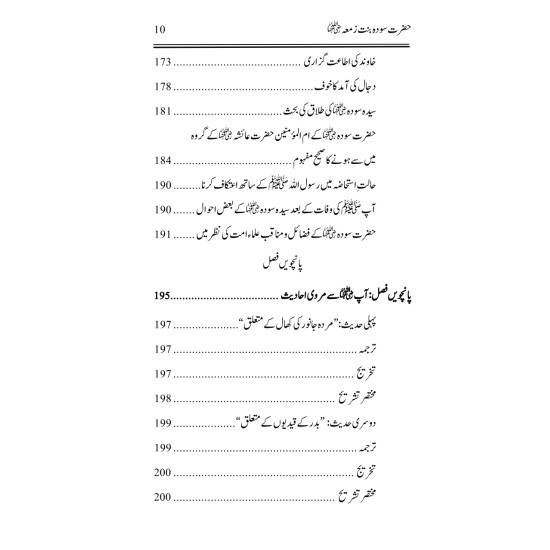 حضرت سودہ بنت زمعہ رضی اللہ عنہا 10
خاوند کی اطاعت گزاری .......................................... 173
دجال کی آمد کا خوف .......................................... 178
سیدہ سودہ رضی اللہ عنہا کی طلاق کی بحث .................................... 181
حضرت سودہ رضی اللہ عنہا کے ام المؤمنین حضرت عائشہ رضی اللہ عنہا کے گروہ
میں سے ہونے کا صحیح مفہوم ........................................ 184
حالتِ استحاضہ میں رسول اللہ ﷺ کے ساتھ اعتکاف کرنا ......... 190
آپ ﷺ کی وفات کے بعد سیدہ سودہ رضی اللہ عنہا کے بعض احوال ....... 190
حضرت سودہ رضی اللہ عنہا کے فضائل و مناقب علماء امت کی نظر میں ....... 191
پانچویں فصل
پانچویں فصل: آپ رضی اللہ عنہا سے مروی احادیث .................................... 195
پہلی حدیث: ”مردہ جانور کی کھال کے متعلق“ ...................... 197
ترجمہ ............................................................. 197
تخریج ............................................................ 197
مختصر تشریح ...................................................... 198
دوسری حدیث: ”بدر کے قیدیوں کے متعلق“ ..................... 199
ترجمہ ............................................................. 199
تخریج ............................................................ 200
مختصر تشریح ...................................................... 200